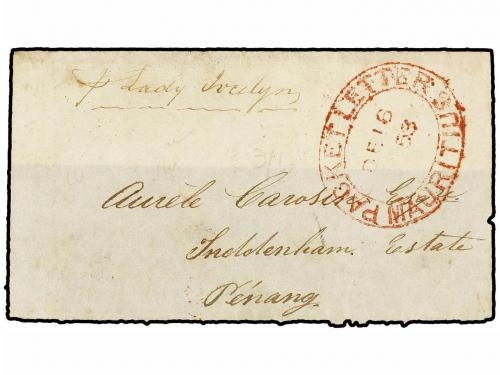 p Lady Jocelyn
PACKET LETTER MAURITIUS
DE 16
53
Aurèle Carosin Esqre
Inddenham. Estate
Pénang.